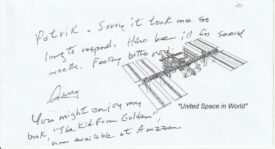 Patrik - Sorry it took me so
long to respond. Have been ill for several
weeks. Feeling better now.
You might enjoy my
book, "The Kid From Golden",
now available at Amazon.
"United Space in World"